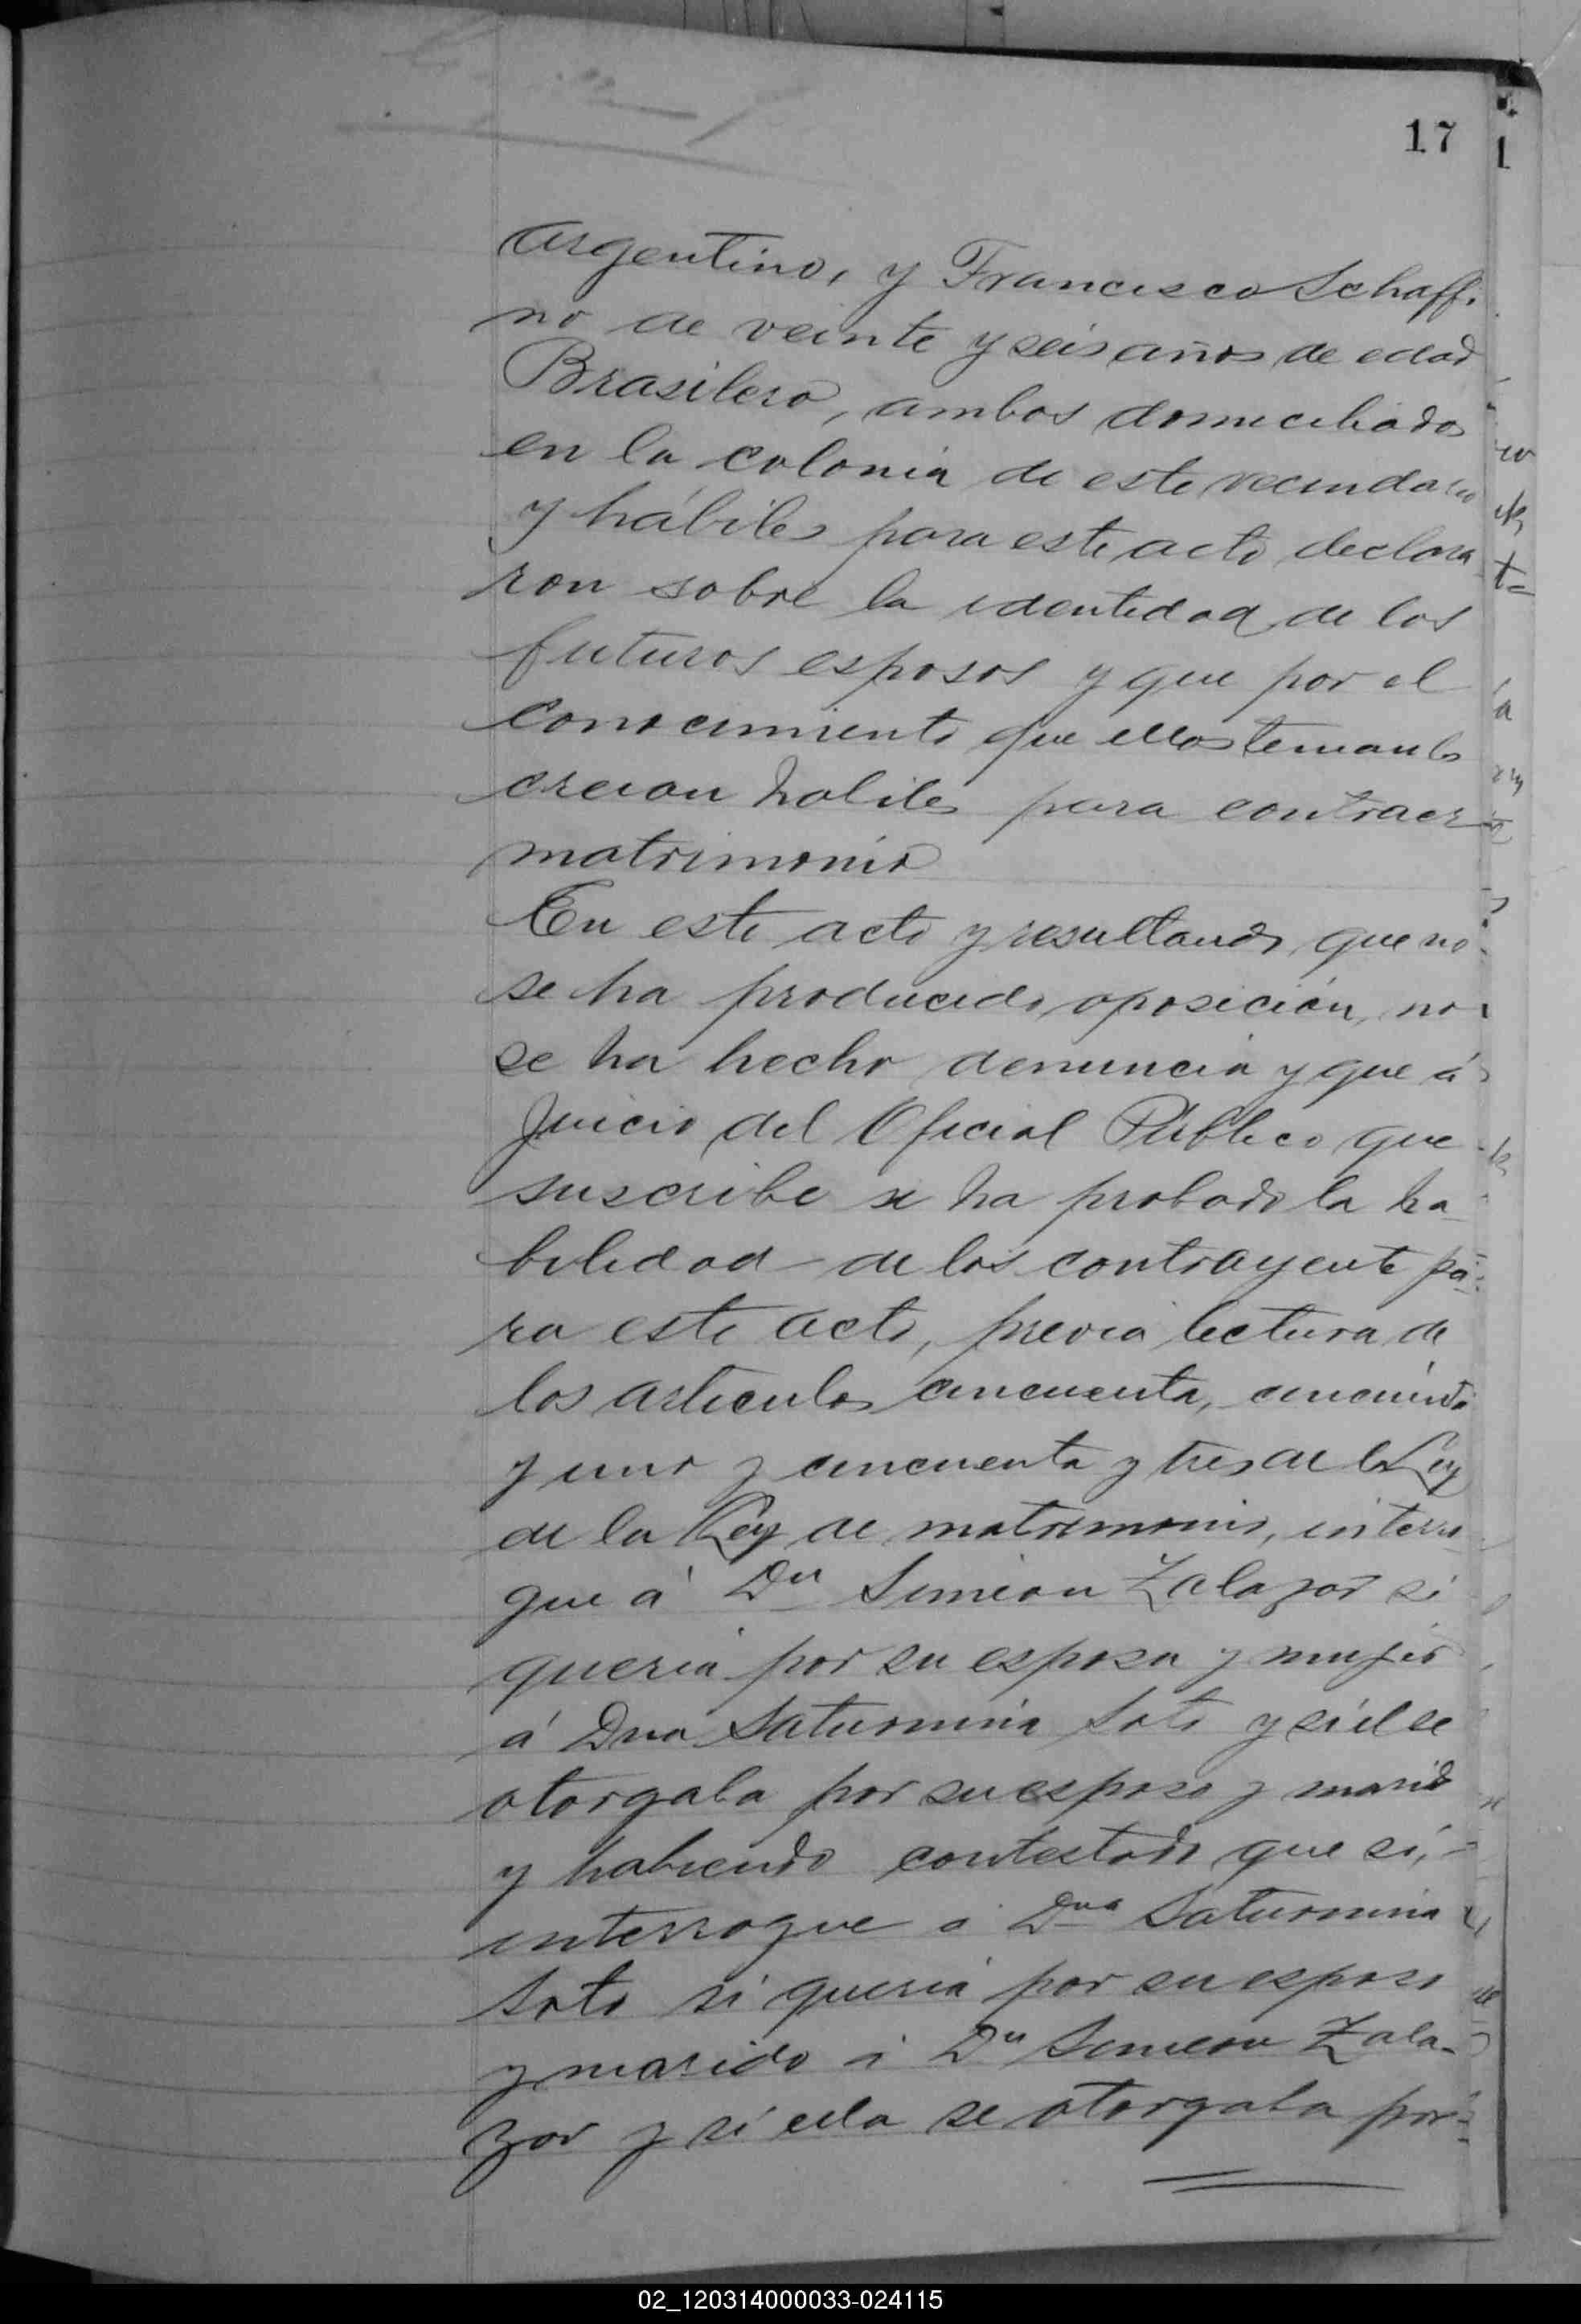 17
Argentino, y Francisco Schaffi
no de veinte y seis años de edad
Brasilero, ambos domiciliados
en la colonia de este vecindario
y hábiles para este acto declara
ron sobre la identidad de los
futuros esposos y que por el
conocimiento que ellos tenian los
creian habiles para contraer
matrimonio
En este acto y resultando que no
se ha producido oposición, no
se ha hecho denuncia y que á
juicio del Oficial Público que
suscribe se ha probado la ha-
bilidad de los contrayente pa-
ra este acto, previa lectura de
los articulos cincuenta, cincuenta
y uno y cincuenta y tres de la Ley
de la Ley de matrimonio, interro-
gue á Dn Simeon Zalazar si
queria por su esposa y mujer
á Dna Saturnina Soto y si él se
otorgaba por su esposo y marido
y habiendo contestado que si,
interrogue a Dna Saturnina
Soto si queria por su esposo
y marido á Dn Simeon Zala-
zar y si ella se otorgaba por
02_120314000033-024115